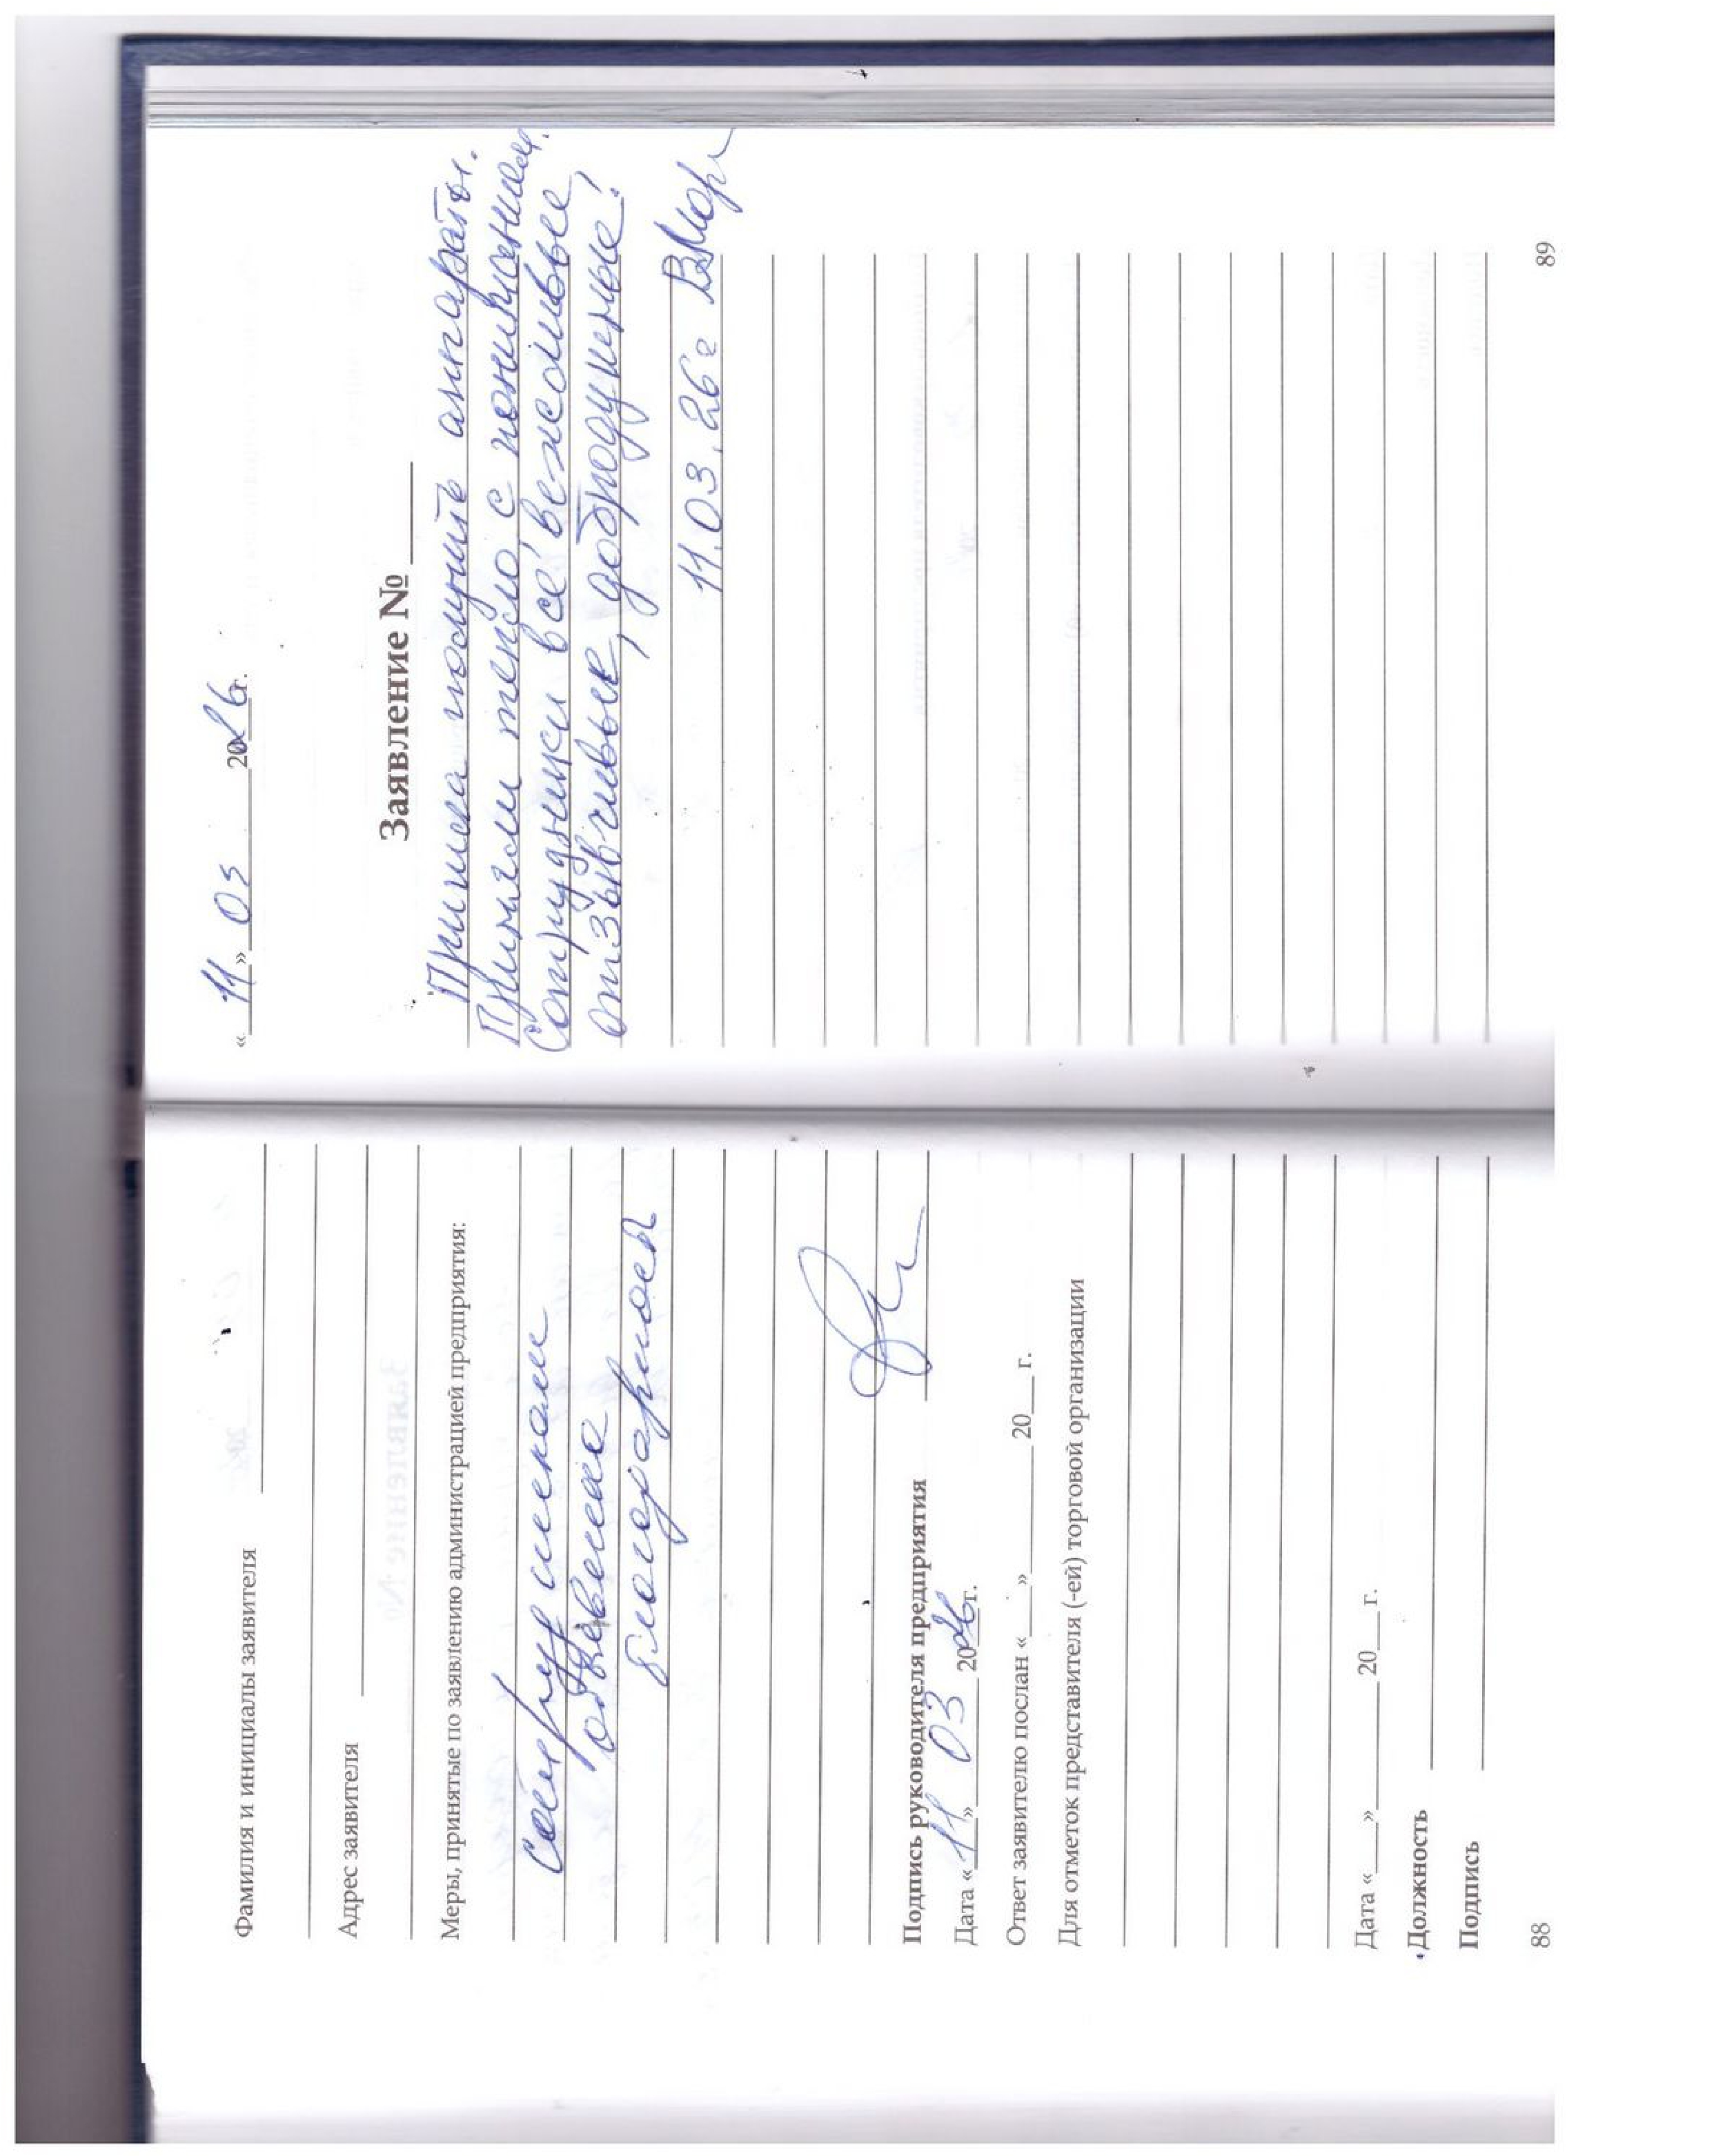 Фамилия и инициалы заявителя
Адрес заявителя
Меры, принятые по заявлению администрацией предприятия:
сотрудникам
объявлена
благодарность
Подпись руководителя предприятия
Дата «11» 03 2026г.
Ответ заявителю послан «___» ______ 20__ г.
Для отметок представителя (-ей) торговой организации
Дата «___» ______ 20__ г.
Должность
Подпись
88
«11» 03 2026г.
Заявление № ____
Пришла получить аппараты.
Приняли тепло, с пониманием.
Сотрудники все вежливые,
отзывчивые, добродушные!
11.03.26г
89